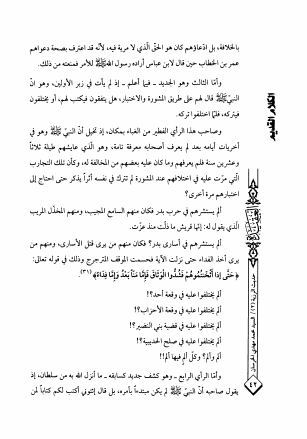 بالخلافة، بل ادّعاؤهم كان هو الحقّ الّذي لا مرية فيه، لأنّه قد اعترف بصحة دعواهم
عمر بن الخطاب حين قال لابن عباس أراده رسول الله ﷺ للأمر فمنعته من ذلك.
وأمّا الثالث وهو الجديد ـ فيما أعلم ـ إذ لم يأت في زبر الأولين، وهو انّ
النبيّ ﷺ قال لهم على طريق المشورة والاختبار، هل يتفقون فيكتب لهم، أو يختلفون
فيتركه، فلمّا اختلفوا تركه.
وصاحب هذا الرأي الفطير من الغباء بمكان، إذ تخيل أنّ النبي ﷺ وهو في
أخريات أيامه بعد لم يعرف أصحابه معرفة تامة، وهو الّذي عايشهم طيلة ثلاثاً
وعشرين سنة فلم يعرفهم وما كان عليه بعضهم من المخالفة له، وكأن تلك التجارب
الّتي مرّت عليه في اختلافهم عند المشورة لم تترك في نفسه أثراً يذكر حتى احتاج إلى
اختبارهم مرة أخرى؟
ألم يستشرهم في حرب بدر فكان منهم السامع المجيب، ومنهم المخذّل المريب
الّذي يقول له: إنها قريش ما ذلّت منذ عزّت.
ألم يستشرهم في أسارى بدر؟ فكان منهم من يرى قتل الأسارى، ومنهم من
يرى أخذ الفداء حتى نزلت الآية فحسمت الموقف المترجرج وذلك في قوله تعالى:
﴿حَتَّى إِذَا أَثْخَنتُمُوهُمْ فَشُدُّوا الْوَثَاقَ فَإِمَّا مَنّاً بَعْدُ وَإِمَّا فِدَاء﴾ (٣١)
ألم يختلفوا عليه في وقعة أحد؟!
ألم يختلفوا عليه في وقعة الأحزاب؟!
ألم يختلفوا عليه في قضية بني النضير؟!
ألم يختلفوا عليه في صلح الحديبية؟!
ألم وألم؟ وكلّ ألم فيها ألم!!
وأمّا الرأي الرابع ـ وهو كشف جديد كسابقه ـ ما أنزل الله به من سلطان، إذ
يقول صاحبه انّ النبيّ ﷺ لم يكن مبتدءاً بأمره، بل قال إئتوني أكتب لكم كتاباً لمن
الكلام القديم
العقيدة
حديث الرزية (٢) / السيد محمد مهدي الخرسان
٤٢